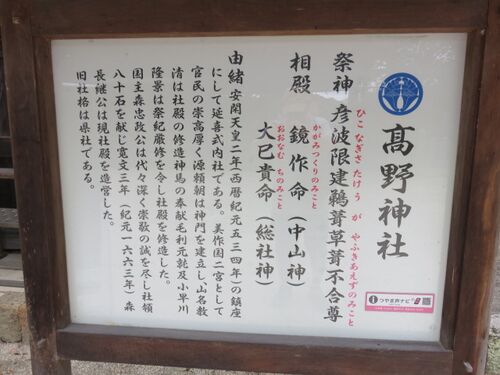 髙野神社
祭神 彦波限建鵜葺草葺不合尊
ひこ なぎさ たけ う が やふきあえずのみこと
相殿 鏡作命（中山神）
かがみつくりのみこと
大己貴命（総社神）
おおなむ ちのみこと
由緒 安閑天皇二年（西暦紀元五三四年）の鎮座
にして延喜式内社である。美作国二宮として
官民の崇高厚く源頼朝は神門を建立し、山名教
清は社殿の修造神馬の奉献毛利元就及小早川
隆景は祭紀厳修を令し社殿を修造した。
国主森忠政公は代々深く崇敬の誠を尽し社領
八十石を献じ寛文三年（紀元一六六三年）森
長継公は現社殿を造営した。
旧社格は県社である。
つやま声ナビ